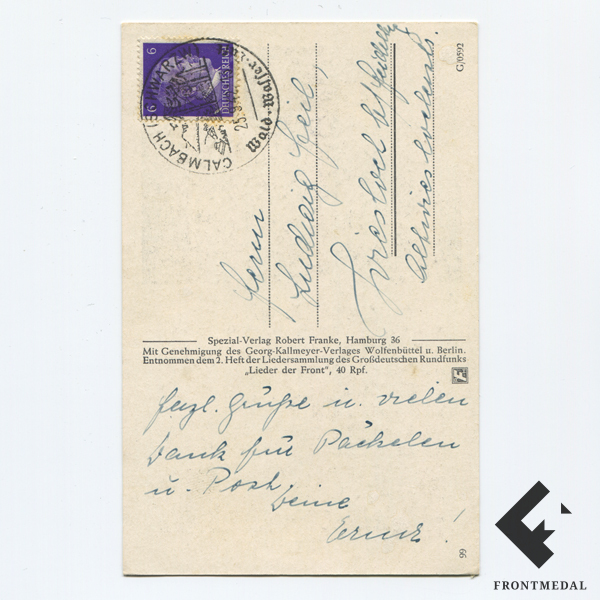 6
6
DEUTSCHES REICH
CALMBACH (SCHWARZW
Wald-Wasser
25.
G/0592
Herrn
Ludwig
Spezial-Verlag Robert Franke, Hamburg 36
Mit Genehmigung des Georg-Kallmeyer-Verlages Wolfenbüttel u. Berlin.
Entnommen dem 2. Heft der Liedersammlung des Großdeutschen Rundfunks
„Lieder der Front", 40 Rpf.
Herzl. Grüße u. vielen
Dank für Päckelen
u. Post, Deine
Erna!
99
FRONTMEDAL